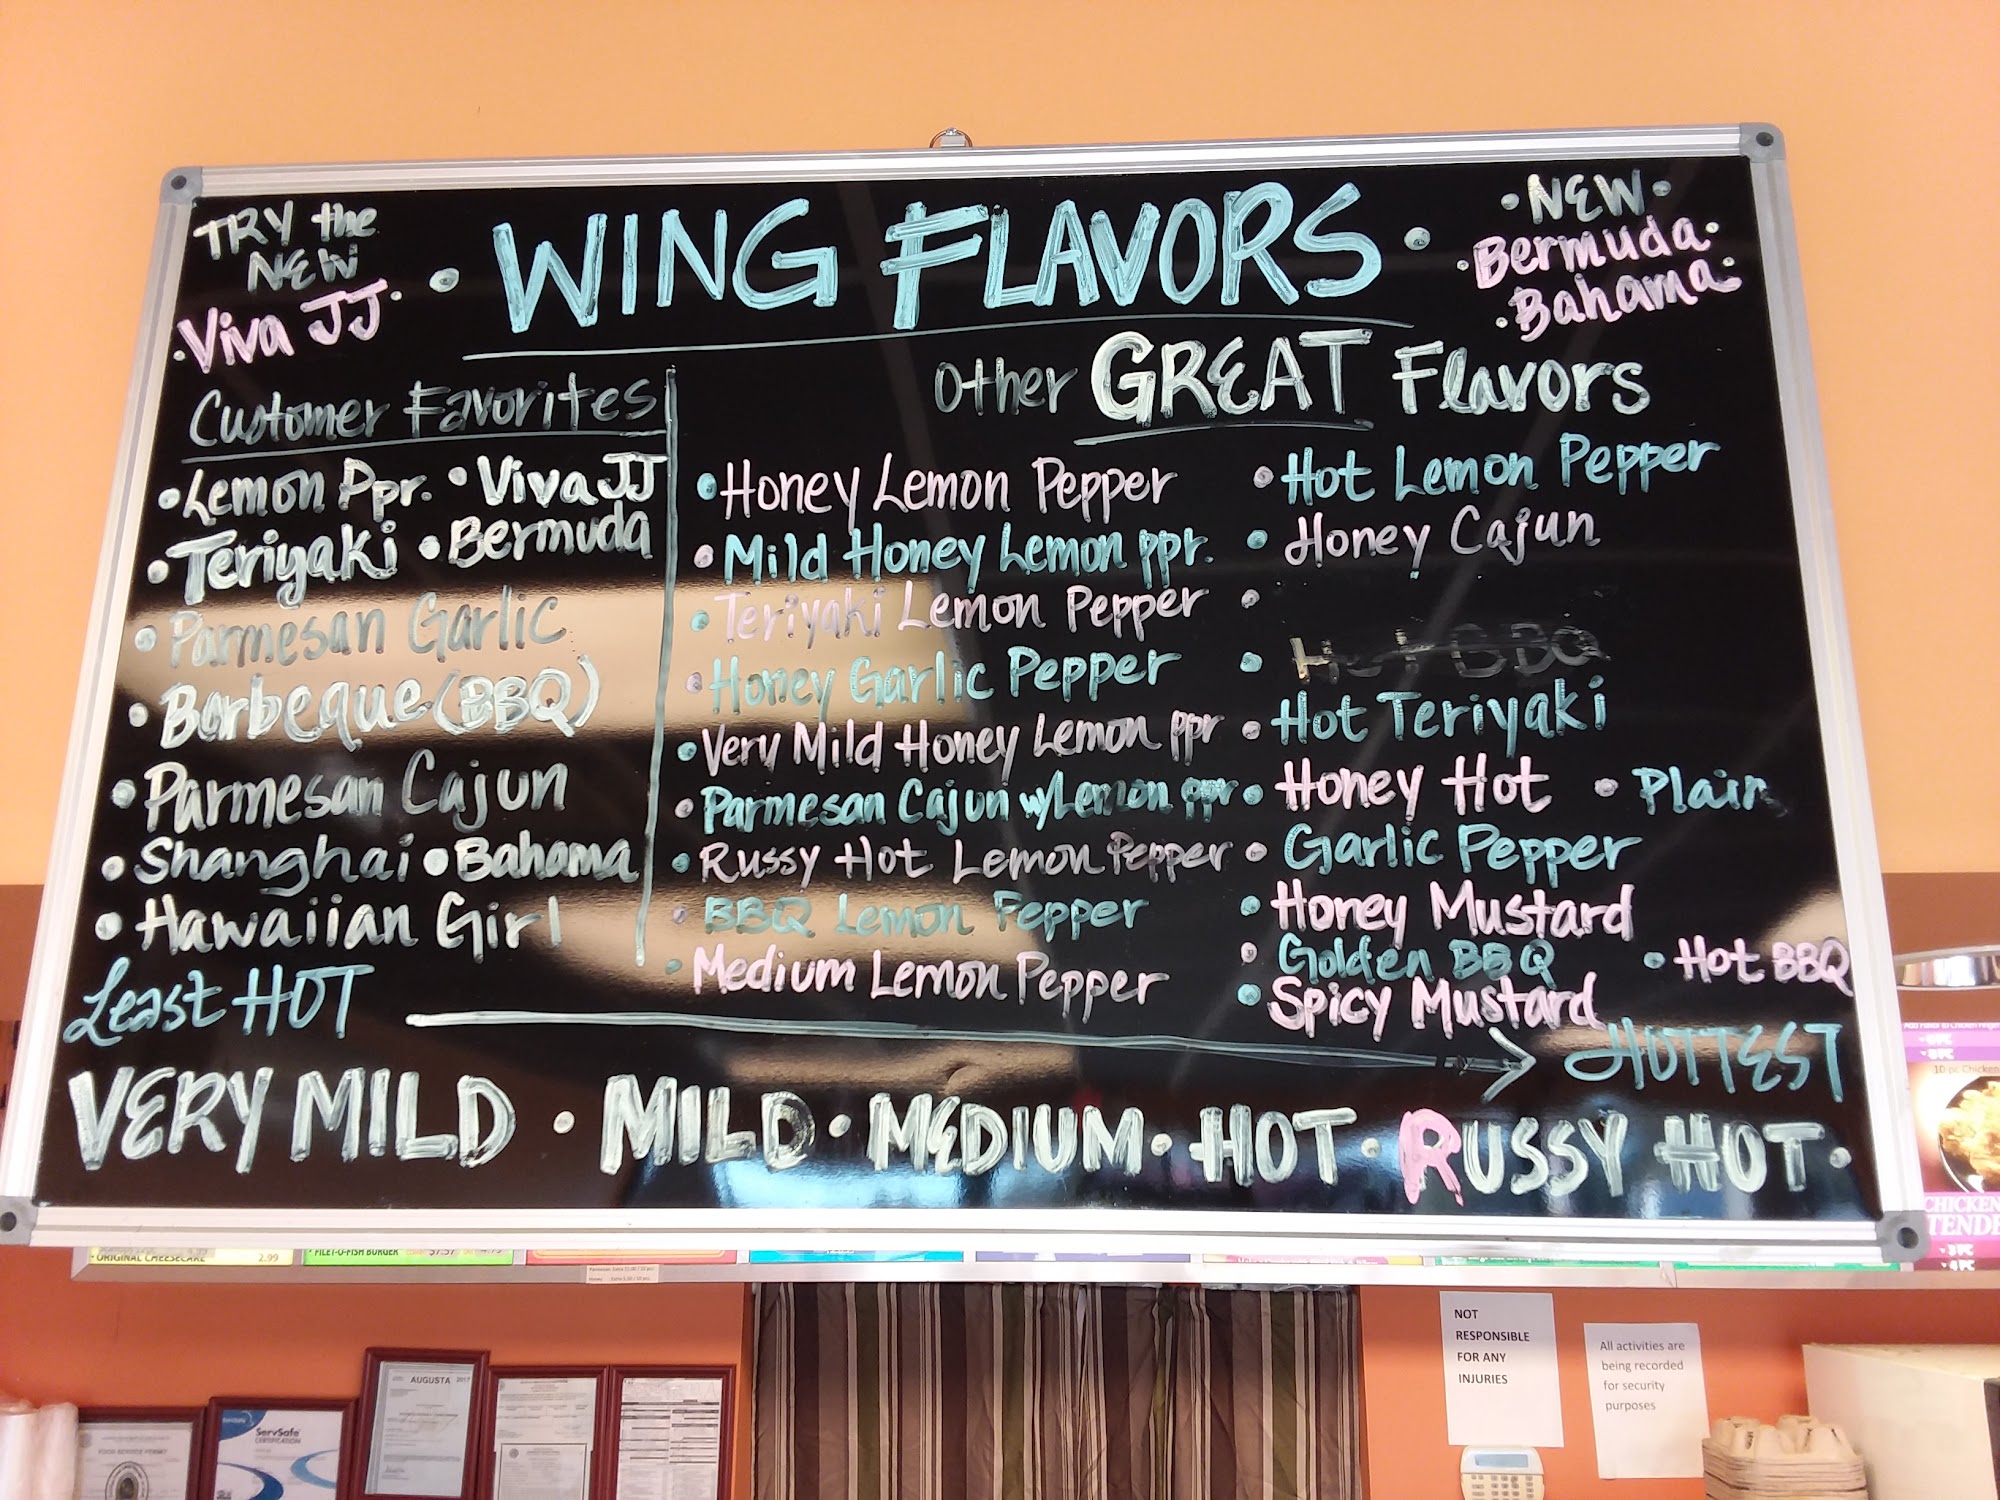 TRY the
NEW
• Viva JJ •
• WING FLAVORS •
• NEW •
• Bermuda •
• Bahama •
Customer Favorites
• Lemon Ppr. • Viva JJ
• Teriyaki • Bermuda
• Parmesan Garlic
• Barbeque (BBQ)
• Parmesan Cajun
• Shanghai • Bahama
• Hawaiian Girl
Other GREAT Flavors
• Honey Lemon Pepper
• Mild Honey Lemon ppr.
• Teriyaki Lemon Pepper
• Honey Garlic Pepper
• Very Mild Honey Lemon ppr
• Parmesan Cajun w/Lemon ppr
• Russy Hot Lemon Pepper
• BBQ Lemon Pepper
• Medium Lemon Pepper
• Hot Lemon Pepper
• Honey Cajun
•
• Hot BBQ
• Hot Teriyaki
• Honey Hot • Plain
• Garlic Pepper
• Honey Mustard
• Golden BBQ • Hot BBQ
• Spicy Mustard
Least HOT
HOTTEST
VERY MILD • MILD • MEDIUM • HOT • RUSSY HOT •
• ORIGINAL CHEESECAKE 2.99
• FILET-O-FISH BURGER
10 pc Chicken
CHICKEN
TENDE
• 3 PC
• 4 PC
NOT
RESPONSIBLE
FOR ANY
INJURIES
All activities are
being recorded
for security
purposes
AUGUSTA 2017
ServSafe
CERTIFICATION
FOOD SERVICE PERMIT